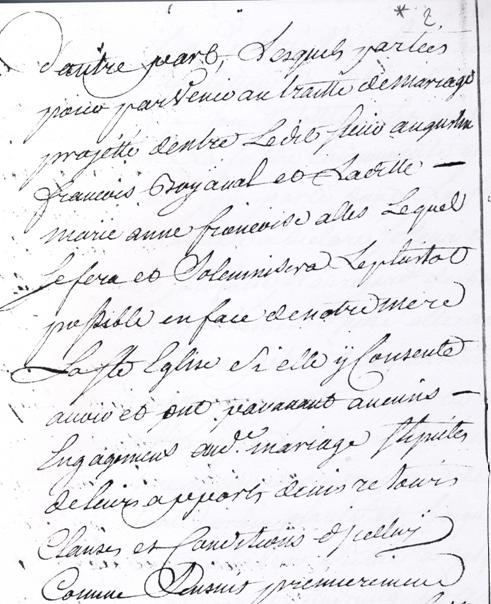 * 2.
d'autre part, Lesquels parties
pour parvenir au traitté de mariage
projetté d'entre Ledit sieur augustin
francois Goyaval et Ladelle —
marie anne francoise alles Lequel
se fera et Solemnisera Leplustot
possible en face de notre mere
La ste Eglise si elle y Consente
avoir et ont paravant aucuns —
Engagement aud. mariage stipulés
de leurs apports devis retours
Clauses et Conditions d'jcelluÿ
Comme S'ensuit premierement